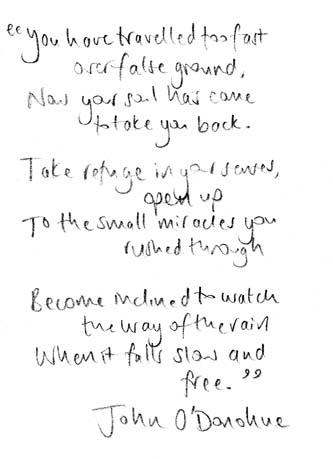 “You have travelled too fast
over false ground,
Now your soul has come
to take you back.
Take refuge in your senses,
open up
To the small miracles you
rushed through
Become inclined to watch
the way of the rain
When it falls slow and
free.”
John O'Donohue